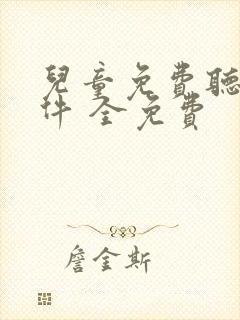 兒童免費聽
件 全免費
詹金斯